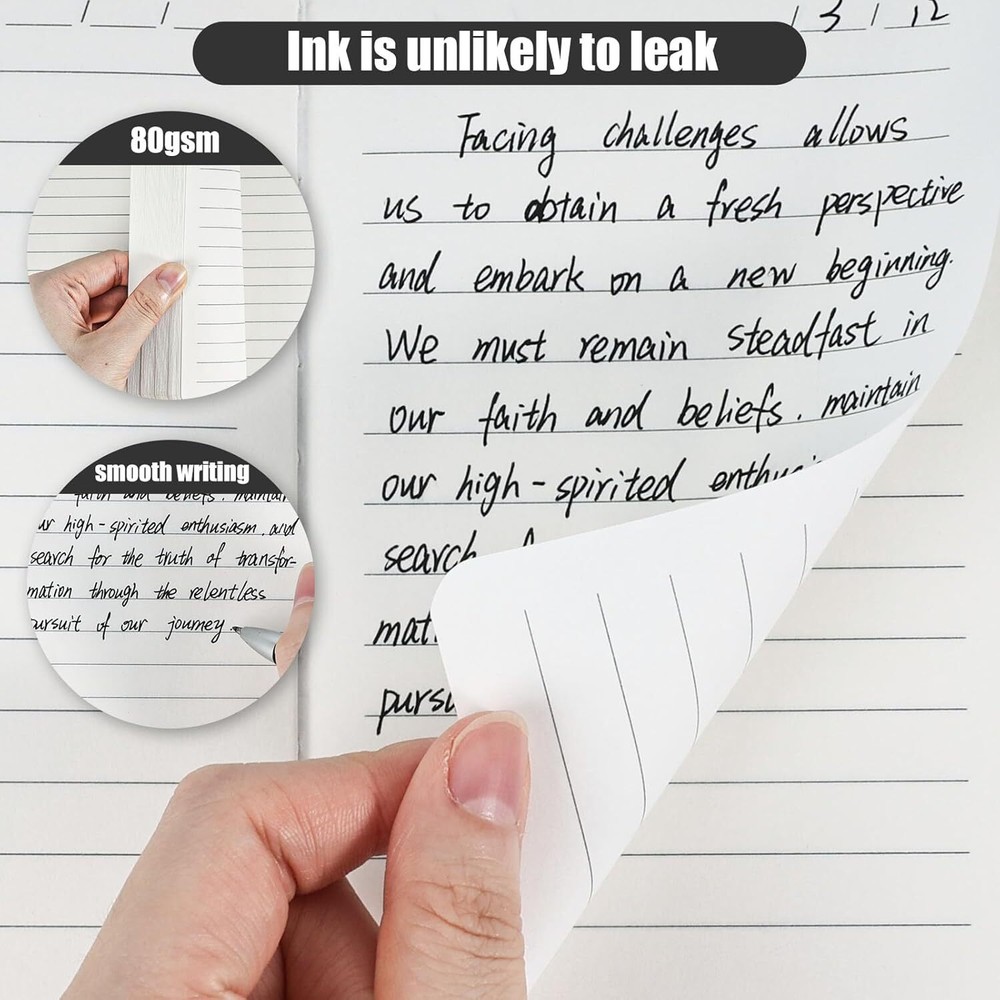 Ink is unlikely to leak
/ 3 / 12
80gsm
Facing challenges allows
us to obtain a fresh perspective
and embark on a new beginning.
We must remain steadfast in
our faith and beliefs. maintain
our high-spirited
search
smooth writing
faith and beliefs. maintain
ur high-spirited enthusiasm. and
search for the truth of transfor-
mation through the relentless
ursuit of our journey.